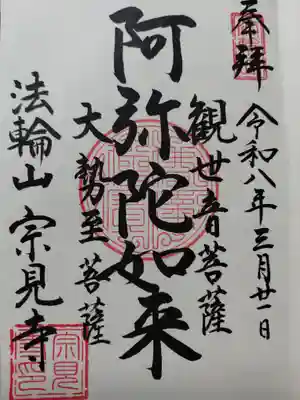 奉拝
令和八年三月廿一日
観世音菩薩
阿弥陀如来
大勢至菩薩
法輪山 宗見寺